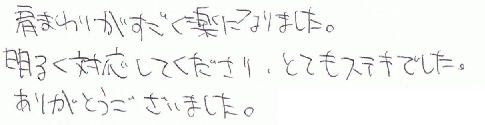 肩まわりがすごく楽になりました。
明るく対応してくださり、とてもステキでした。
ありがとうございました。